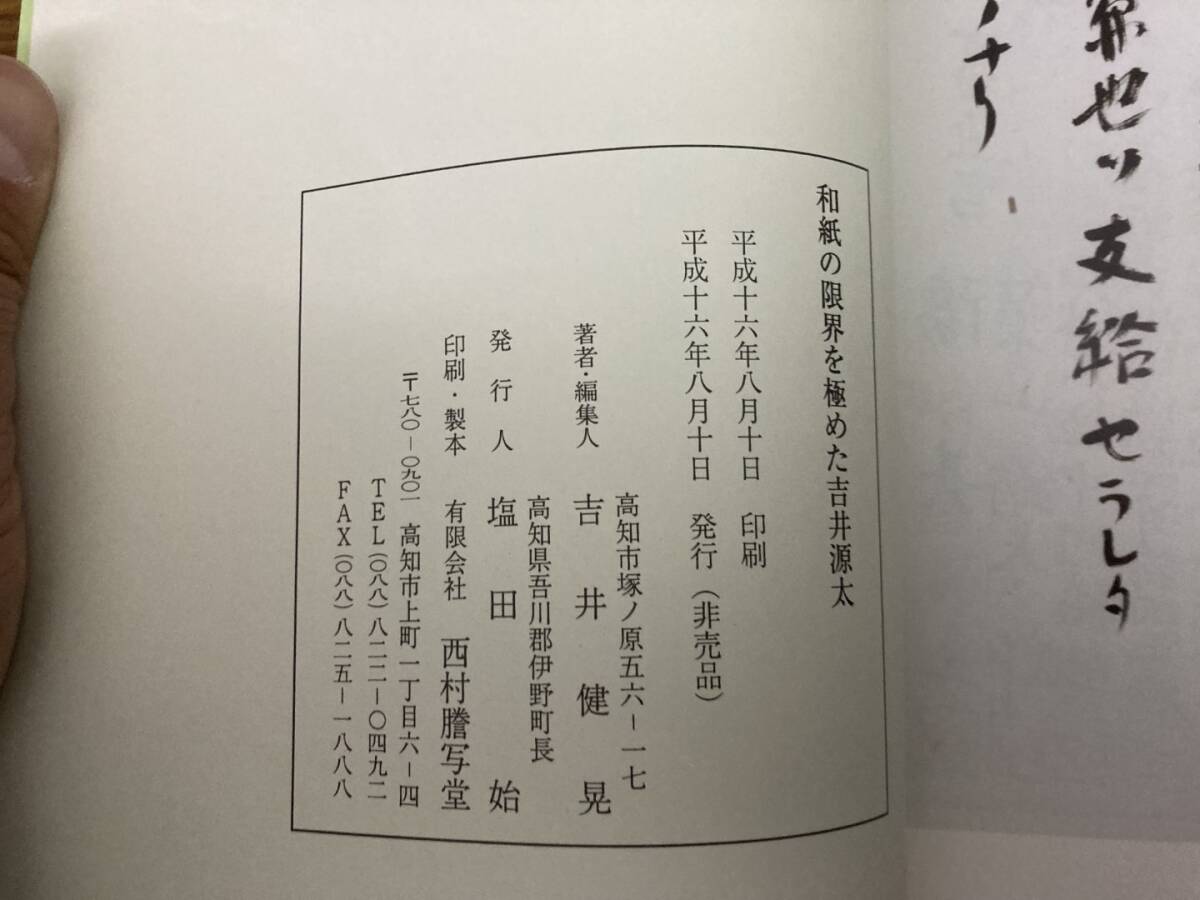 支給セラレタ
ナリ
和紙の限界を極めた吉井源太
平成十六年八月十日 印刷
平成十六年八月十日 発行（非売品）
高知市塚ノ原五六－一七
著者・編集人 吉井健晃
高知県吾川郡伊野町長
発行人 塩田始
印刷・製本 有限会社 西村謄写堂
〒七八〇－〇九〇一 高知市上町一丁目六－四
TEL（〇八八）八二二－〇四九二
FAX（〇八八）八二五－一八八八